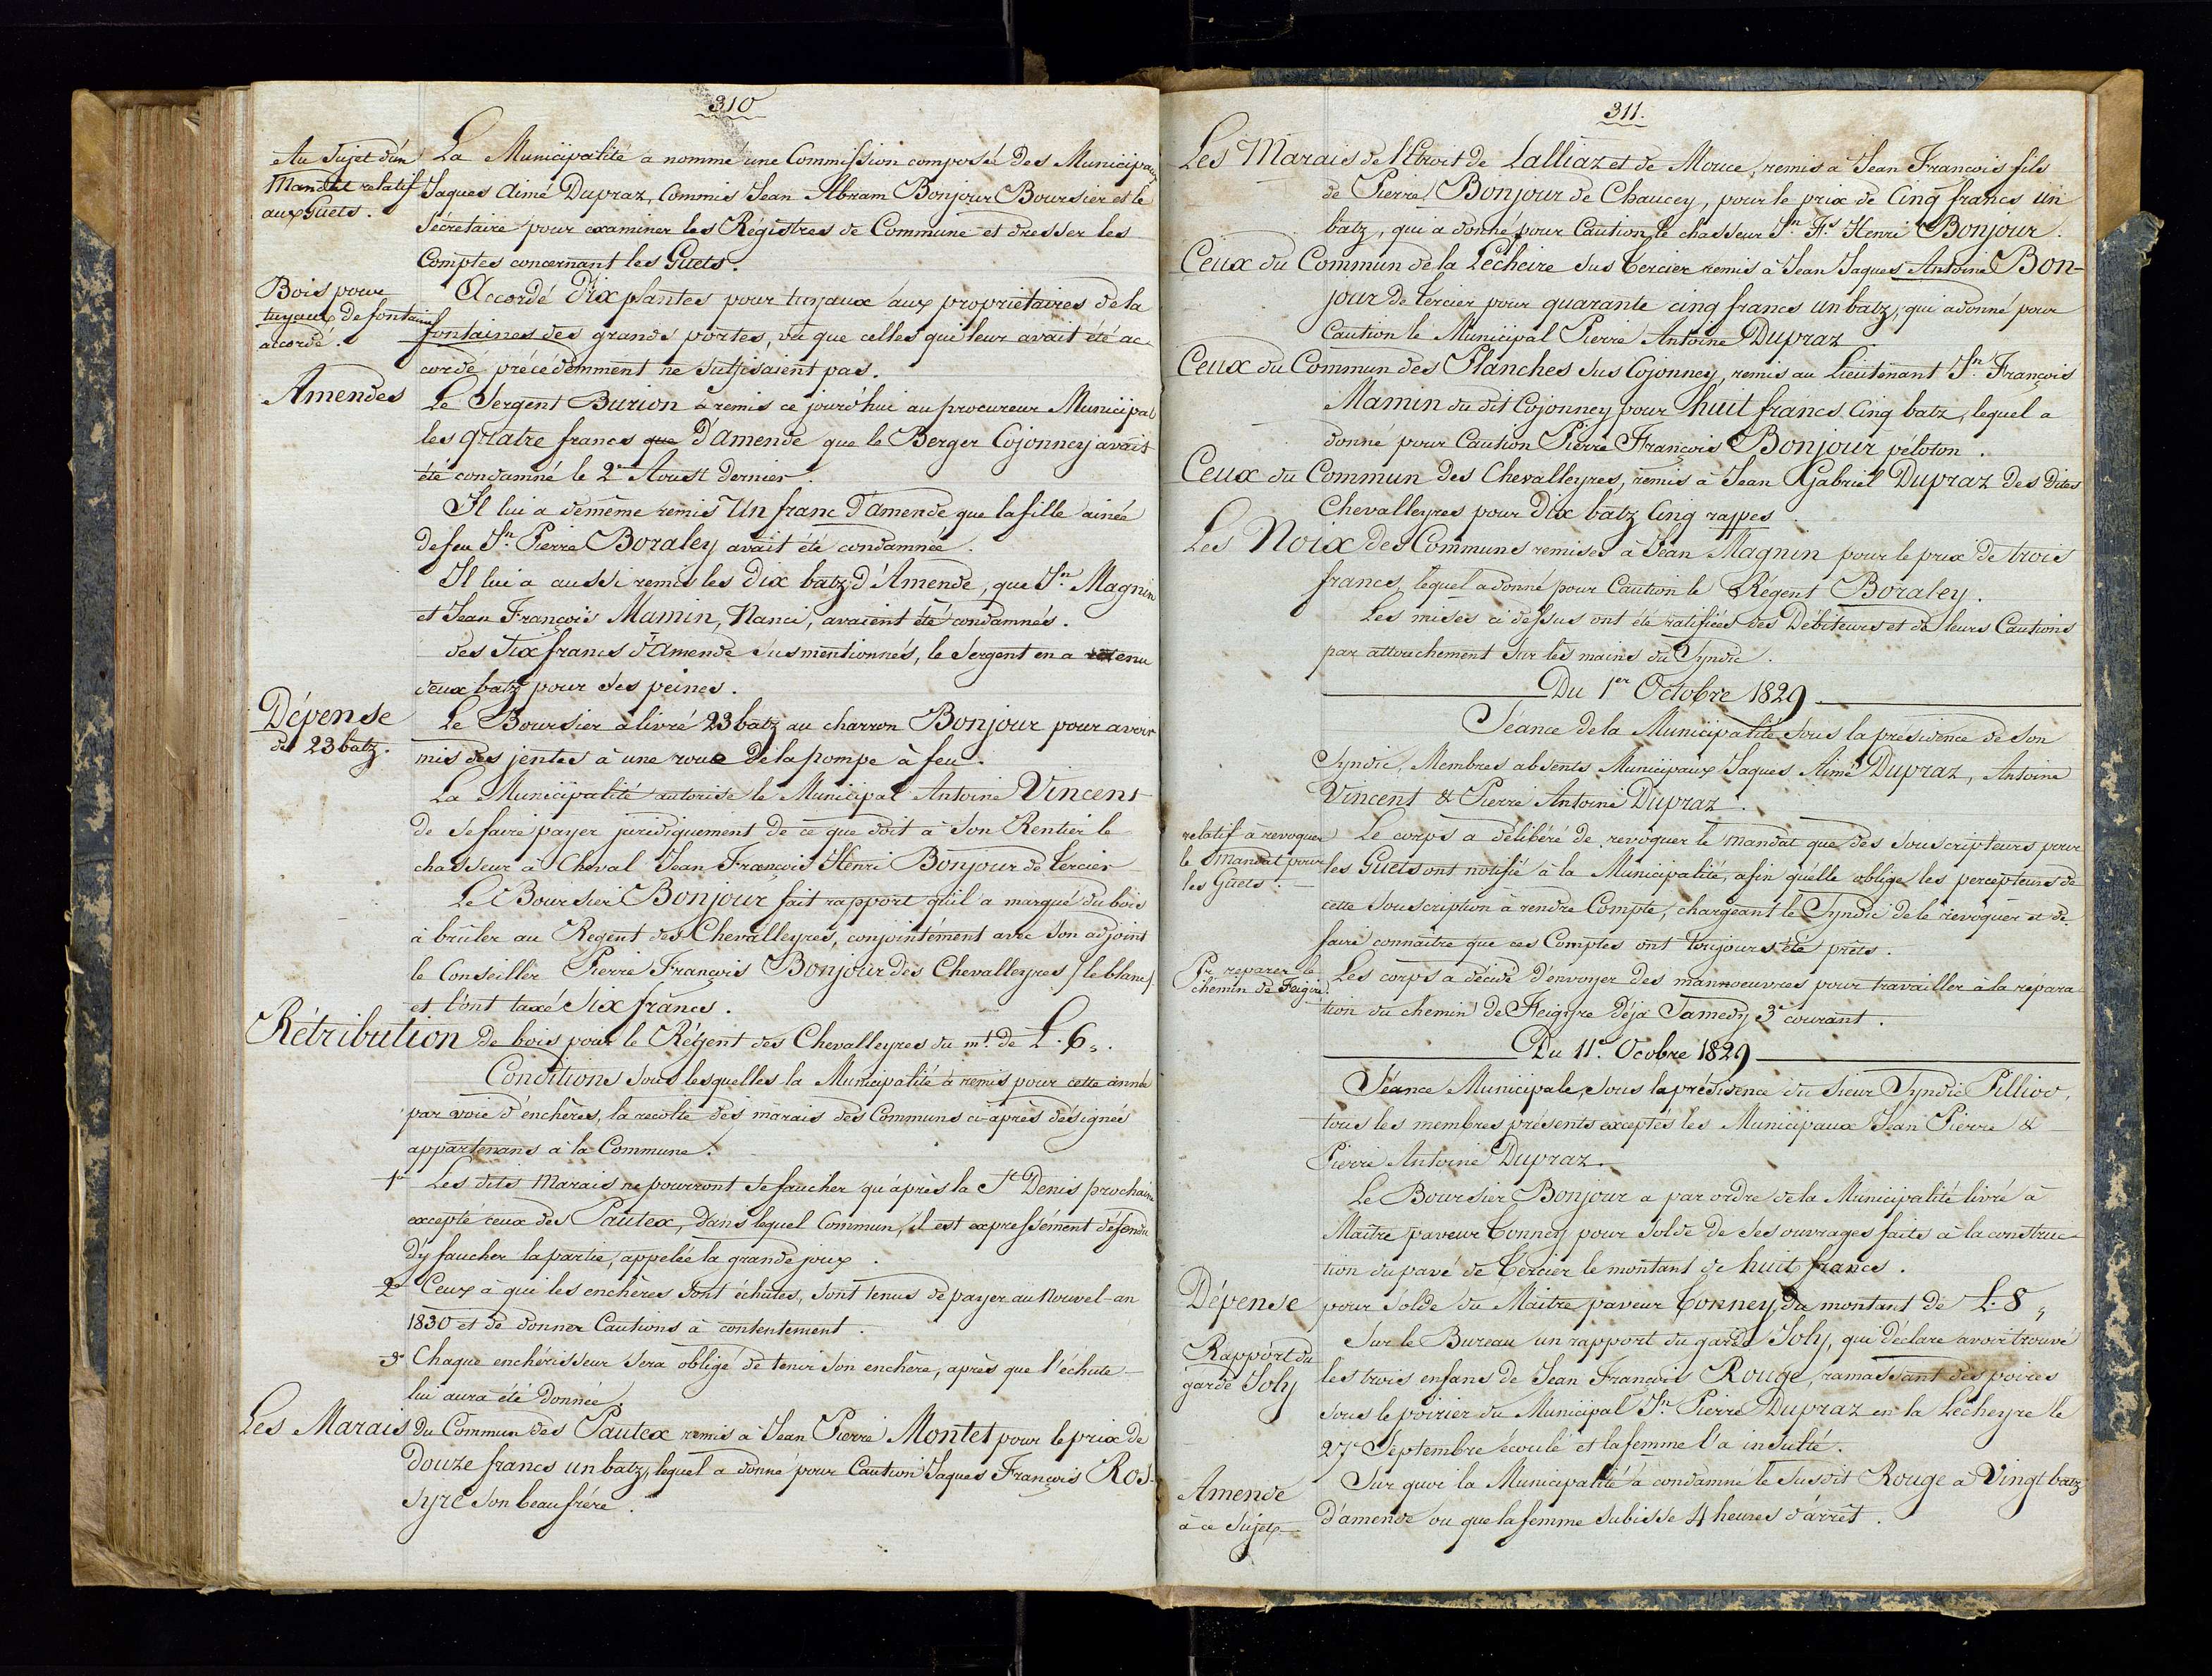 310
Au Sujet d'un
Mandat relatif
aux Guets.
La Municipalité a nommé une Commission composée des Municipaux
Jaques Aimé Dupraz, Commis Jean Abram Bonjour Boursier et le
Sécretaire pour examiner les Régistres de Commune et dresser les
Comptes concernant les Guets.
Bois pour
tuyaux de fontaine
accordé.
Accordé Dix plantes pour tuyaux aux proprietaires de la
fontaines des grande portes, vû que celles qui leur avait été ac-
cordé précédemment ne suffisaient pas.
Amendes
Le Sergent Burion à remis ce jourd'hui au procureur Municipal
les quatre francs que D'amende que le Berger Cojonney avait
été condamné le 2e Aoust dernier.
Il lui a demême remis Un franc D'amende, que la fille ainée
de feu Jn. Pierre Boraley avait été condamnée.
Il lui a aussi remis les Dix batz D'Amende, que Jn. Magnin
et Jean François Mamin, Nanci, avaient été condamnés.
des Six francs d'Amende susmentionnés, le Sergent en a retenu
deux batz pour ses peines.
Dépense
de 23 batz.
Le Boursier a livré 23 batz au charron Bonjour pour avoir
mis des jentes à une roue de la pompe à feu.
La Municipalité autorise le Municipal Antoine Vincent
de se faire payer juridiquement de ce que doit à son Rentier le
chasseur à Cheval Jean François Henri Bonjour de Tercier
Le Boursier Bonjour fait rapport qu'il a marqué du bois
à brûler au Regent des Chevalleyres, conjointément avec son adjoint
le Conseiller Pierre François Bonjour des Chevalleyres / le blanc /
et l'ont taxé Six francs.
Rétribution de bois pour le Régent des Chevalleyres du mt. de L. 6„.
Conditions sous lesquelles la Municipalité à remis pour cette année
par voie d'enchères, la recolte des marais des Communs ci-après désignés
appartenans à la Commune.
1° Les dits Marais ne pourront se faucher qu'après la St Denis prochaine
excepté ceux des Pautex, Dans lequel Commun, il est expressément défendu
D'y faucher la partie, appelée la grande joux.
2° Ceux à qui les enchères sont échutes, sont tenus de payer au Nouvel-an
1830 et de donner Cautions à contentement.
3° Chaque enchérisseur sera obligé de tenir son enchère, après que l'échute
lui aura été Donnée.
Les Marais du Commun des Pautex remis à Jean Pierre Montet pour le prix de
Douze francs un batz, lequel a donné pour Caution Jaques François Ros-
syre son beau frére.
311.
Les Marais de l'Etroit de Lalliaz et de Mouce, remis à Jean François fils
de Pierre Bonjour de Chaucey, pour le prix de Cinq francs un
batz, qui a donné pour Caution le chasseur Jn. Fs. Henri Bonjour.
Ceux du Commun de la Lécheire sus Tercier remis à Jean Jaques Antoine Bon-
jour de Tercier pour quarante cinq francs un batz, qui a donné pour
Caution le Municipal Pierre Antoine Dupraz
Ceux du Commun des Planches sus Cojonney, remis au Lieutenant Jn. François
Mamin du dit Cojonney pour huit francs Cinq batz, lequel a
donné pour Caution Pierre François Bonjour péloton.
Ceux du Commun des Chevalleyres, remis à Jean Gabriel Dupraz des Dites
Chevalleyres pour Dix batz Cinq rappes
Les Noix des Communs remises à Jean Magnin pour le prix de trois
francs, lequel a donné pour Caution le Régent Boraley.
Les mises ci dessus ont été ratifiées des Débiteurs et de leurs Cautions
par attouchement sur les mains du Syndic.
Du 1er Octobre 1829
Séance de la Municipalité sous la présidence de son
Syndic, Membres absents Municipaux Jaques Aimé Dupraz, Antoine
Vincent & Pierre Antoine Dupraz.
relatif à revoquer
le Mandat pour
les Guets.
Le corps a délibéré de revoquer le mandat que des souscripteurs pour
les Guets ont notifié à la Municipalité, afin qu'elle oblige les percepteurs de
cette souscription à rendre Compte, chargeant le Syndic de le revoquer et de
faire connaitre que ces Comptes ont toujours été prêts.
Pr. reparer le
chemin de Feigire.
Les corps a décidé d'envoyer des mannoeuvres pour travailler à la répara-
tion du chemin de Feigire déja Samedy 3e courant.
Du 11e. Ocobre 1829
Séance Municipale, sous la présidence du Sieur Syndic Pilliod,
tous les membres présents exceptés les Municipaux Jean Pierre &
Pierre Antoine Dupraz.
Le Boursier Bonjour a par ordre de la Municipalité livré à
Maître paveur Tonney pour solde de ses ouvrages faits à la construc-
tion du pavé de Tercier le montant de huit francs.
Dépense pour solde du Maitre paveur Tonney du montant de L. 8„
Rapport du
garde Joly
Sur le Bureau un rapport du garde Joly, qui déclare avoir trouvé
les trois enfans de Jean François Rouge, ramassant des poires
sous le poirier du Municipal Jn Pierre Dupraz en la Lecheyre le
27e Septembre écoulé et la femme l'a insulté.
Amende
à ce Sujet
Sur quoi la Municipalité à condamné le susdit Rouge à Vingt batz
D'amende ou que la femme subisse 4 heures d'arrêt.